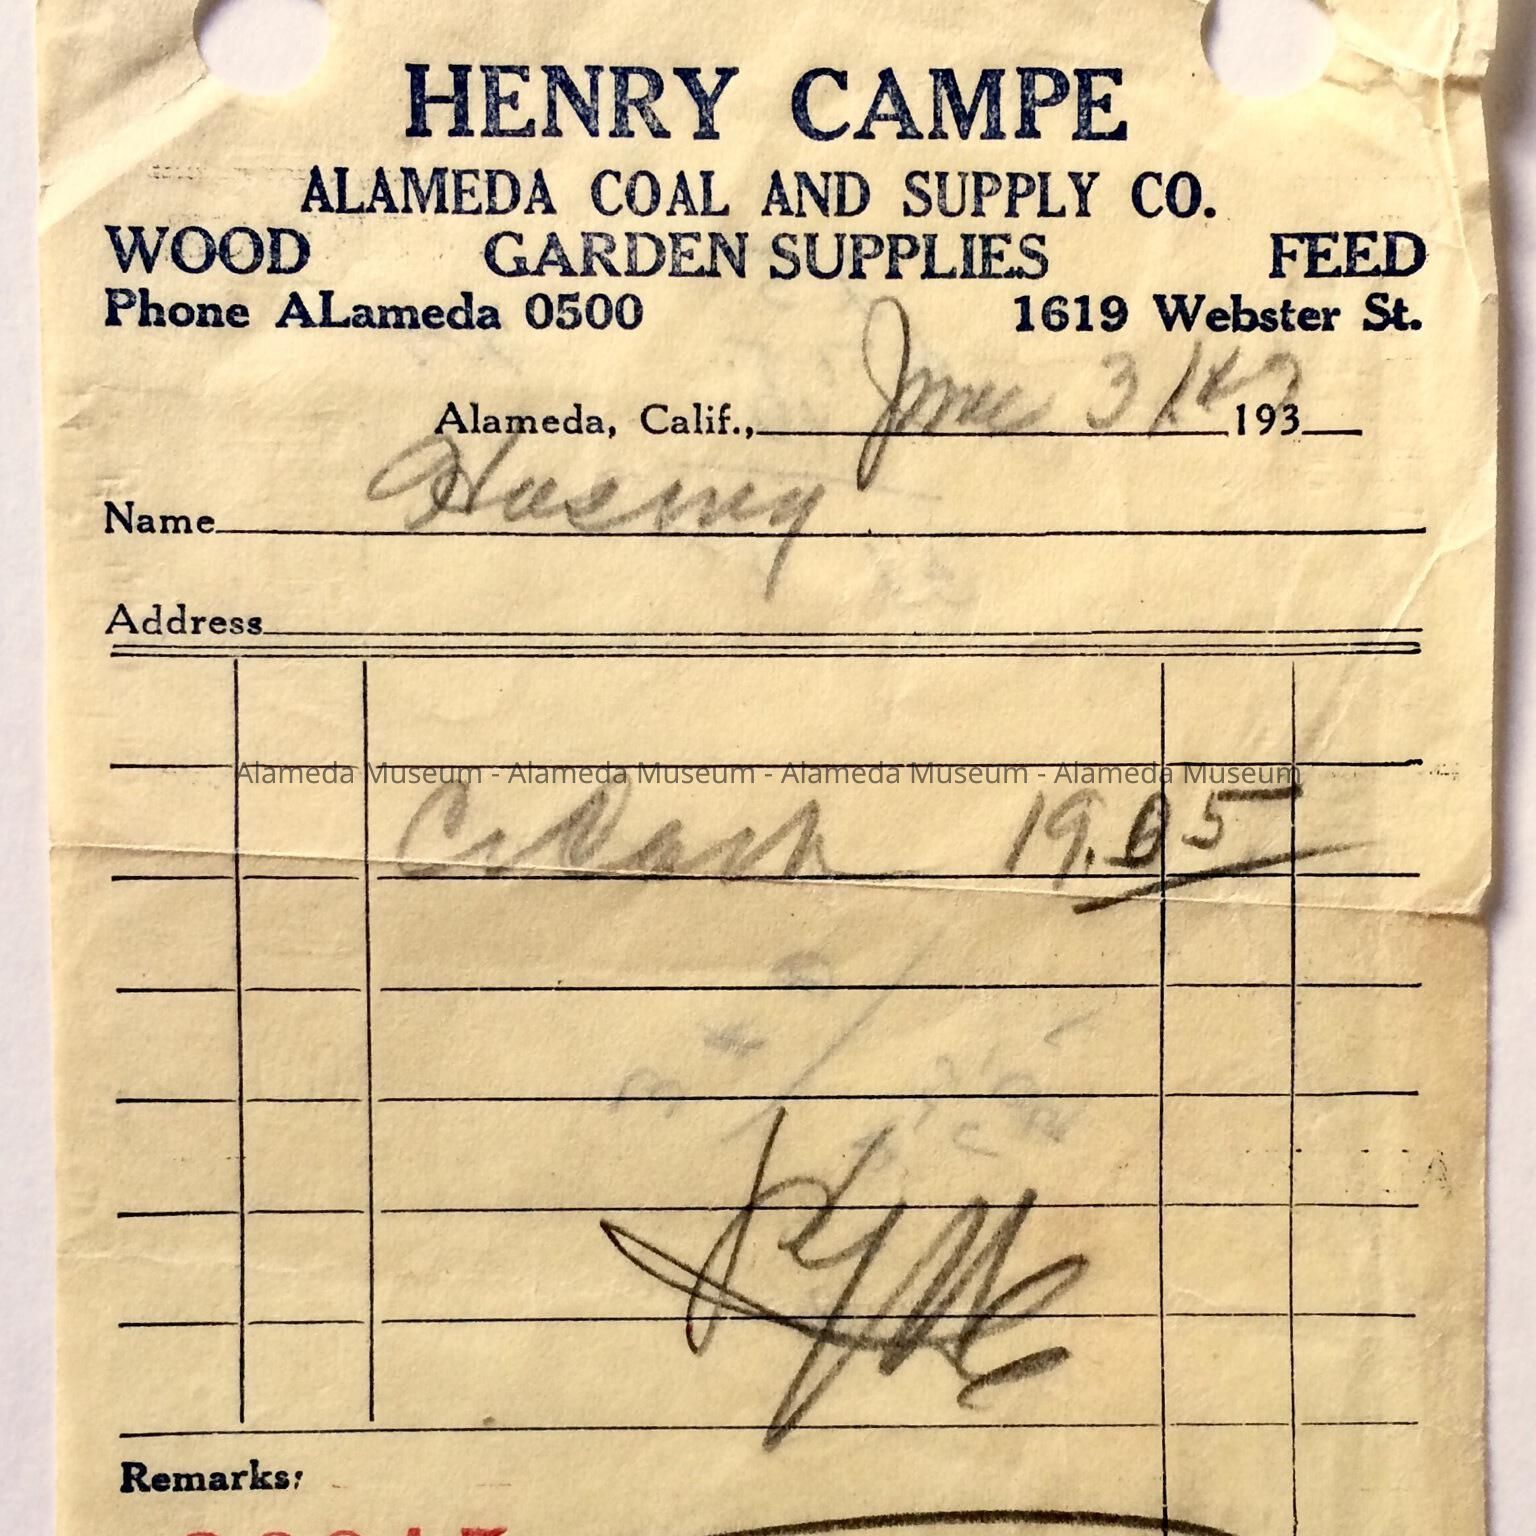 HENRY CAMPE
ALAMEDA COAL AND SUPPLY CO.
WOOD GARDEN SUPPLIES FEED
Phone ALameda 0500 1619 Webster St.
Alameda, Calif., June 3/42 193
Name
Address
Alameda Museum - Alameda Museum - Alameda Museum - Alameda Museum
19.05
Remarks: